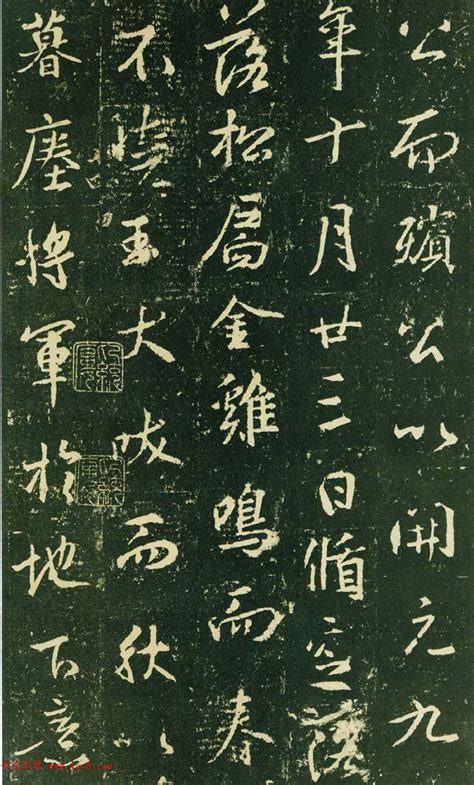 公而殯公以開元九
年十月廿三日循窆
落松扃金雞鳴而春
不曉玉犬吠而秋以
暮塵將軍於地下